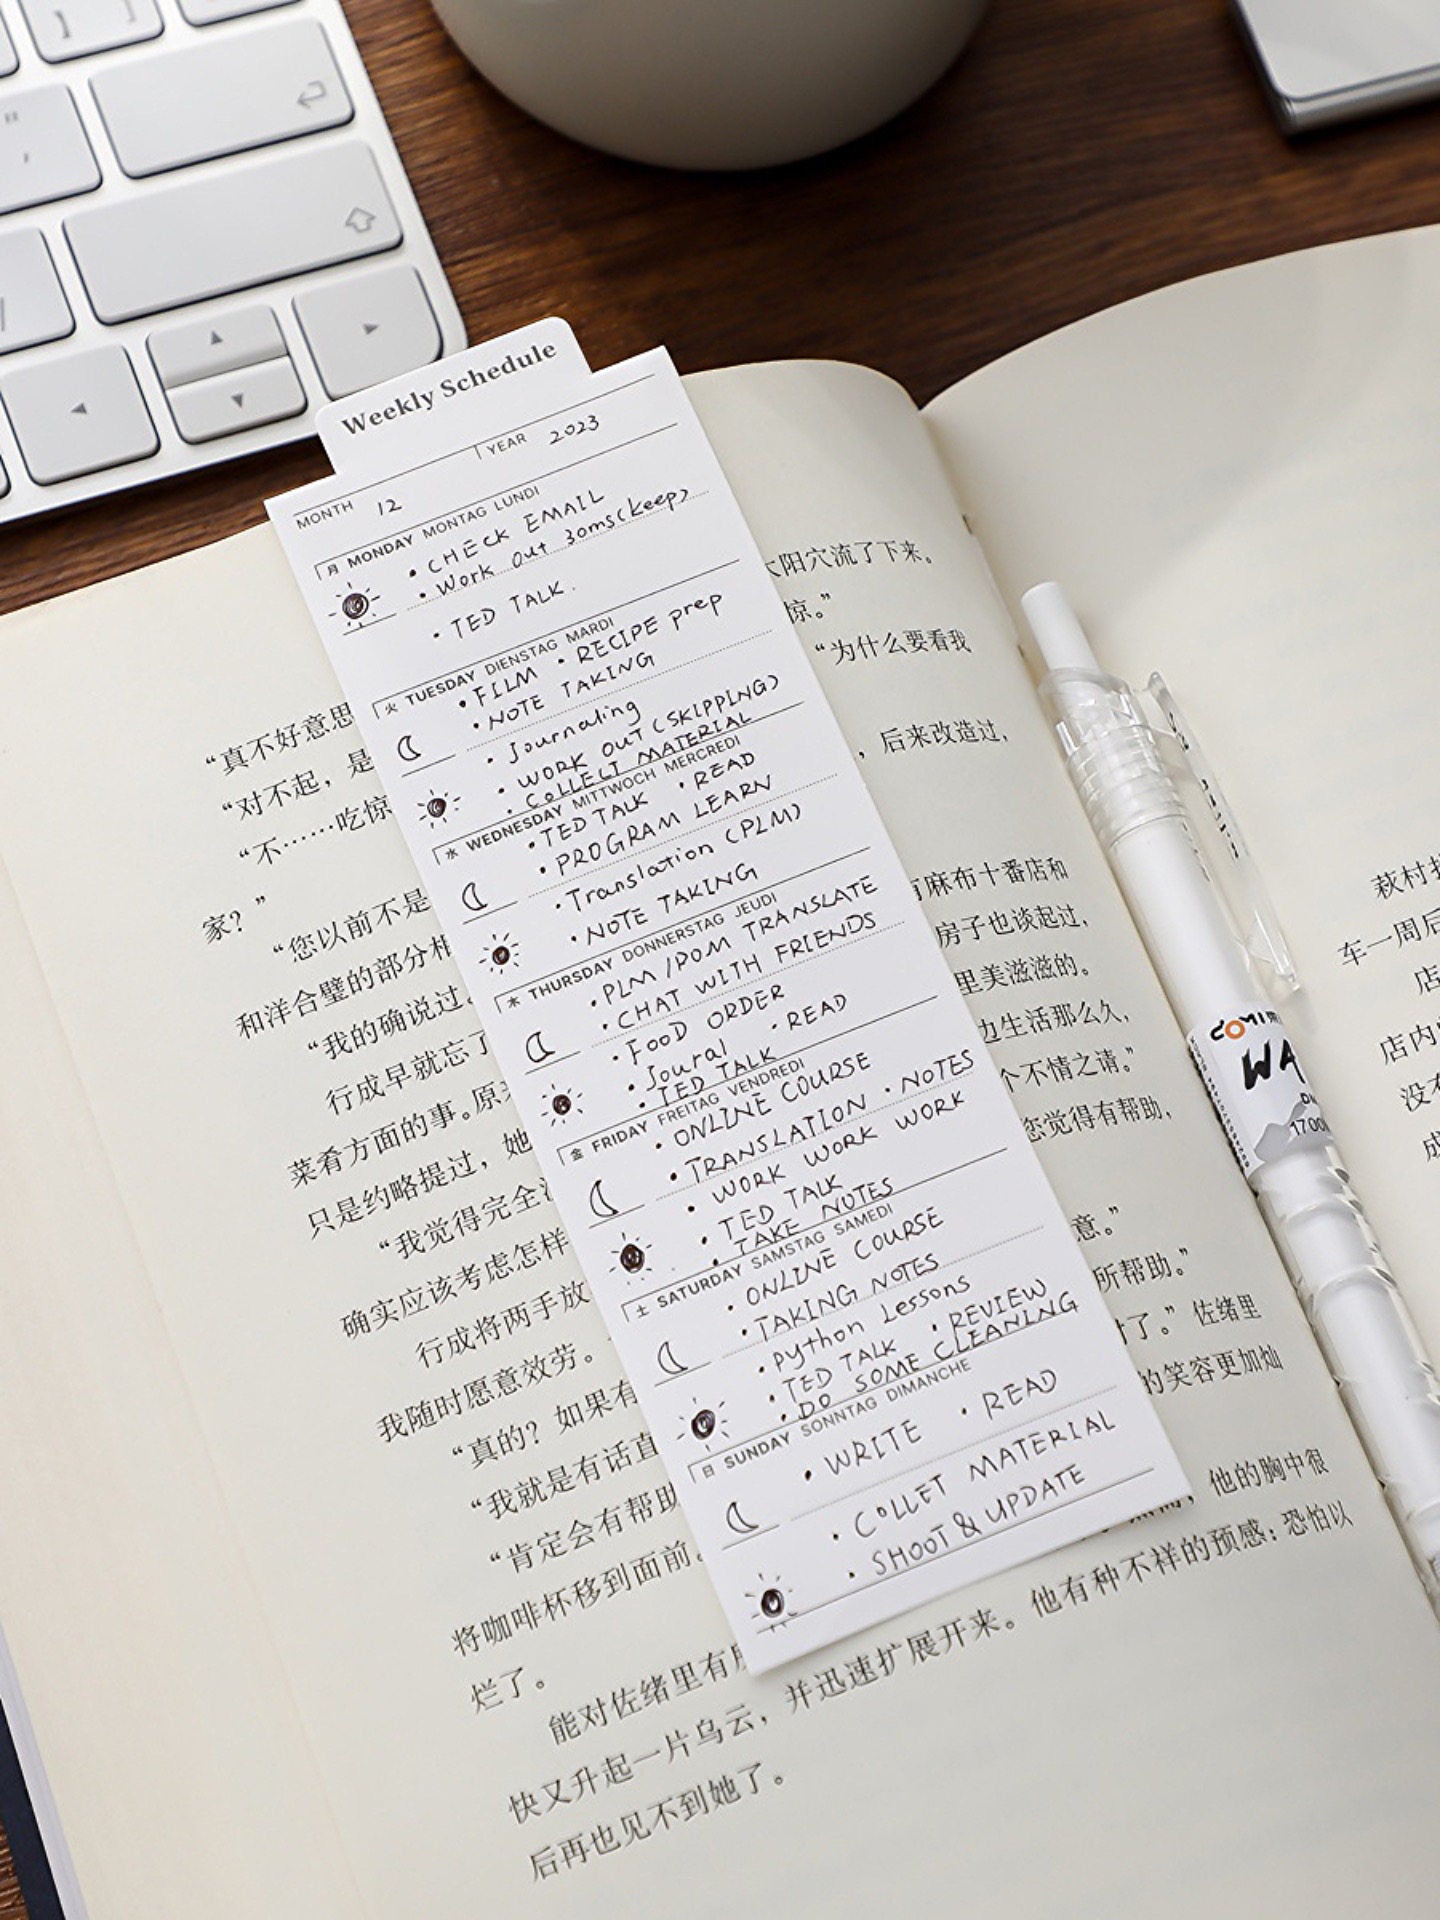 Weekly Schedule
MONTH 12 YEAR 2023
月 MONDAY MONTAG LUNDI
• CHECK EMAIL
• Work out 30ms(keep)
• TED TALK.
火 TUESDAY DIENSTAG MARDI
• FILM • RECIPE prep
• NOTE TAKING
• Journaling
• WORK OUT (SKIPPING)
• COLLECT MATERIAL
水 WEDNESDAY MITTWOCH MERCREDI
• TED TALK • READ
• PROGRAM LEARN
• Translation (PLM)
• NOTE TAKING
木 THURSDAY DONNERSTAG JEUDI
• PLM/POM TRANSLATE
• CHAT WITH FRIENDS
• FOOD ORDER
• Joural • READ
• TED TALK
金 FRIDAY FREITAG VENDREDI
• ONLINE COURSE
• TRANSLATION • NOTES
• WORK WORK WORK
• TED TALK
• TAKE NOTES
土 SATURDAY SAMSTAG SAMEDI
• ONLINE COURSE
• TAKING NOTES
• python Lessons
• TED TALK • REVIEW
• DO SOME CLEANING
日 SUNDAY SONNTAG DIMANCHE
• WRITE • READ
• COLLET MATERIAL
• SHOOT & UPDATE
太阳穴流了下来。
惊。”
“为什么要看我
“真不好意思
“对不起，是
，后来改造过，
“不……吃惊
家？”
“您以前不是
有麻布十番店和
和洋合璧的部分相
房子也谈起过，
“我的确说过。
里美滋滋的。
行成早就忘了
边生活那么久，
菜肴方面的事。原来
个不情之请。”
只是约略提过，她
您觉得有帮助，
“我觉得完全没
确实应该考虑怎样
意。”
行成将两手放
所帮助。”
我随时愿意效劳。
时了。”佐绪里
“真的？如果有
的笑容更加灿
“我就是有话直
“肯定会有帮助
他的胸中很
咖啡杯移到面前。
他有种不祥的预感：恐怕以
烂了。
能对佐绪里有
快又升起一片乌云，并迅速扩展开来。
后再也见不到她了。
车一周后
店
店内
没有
成